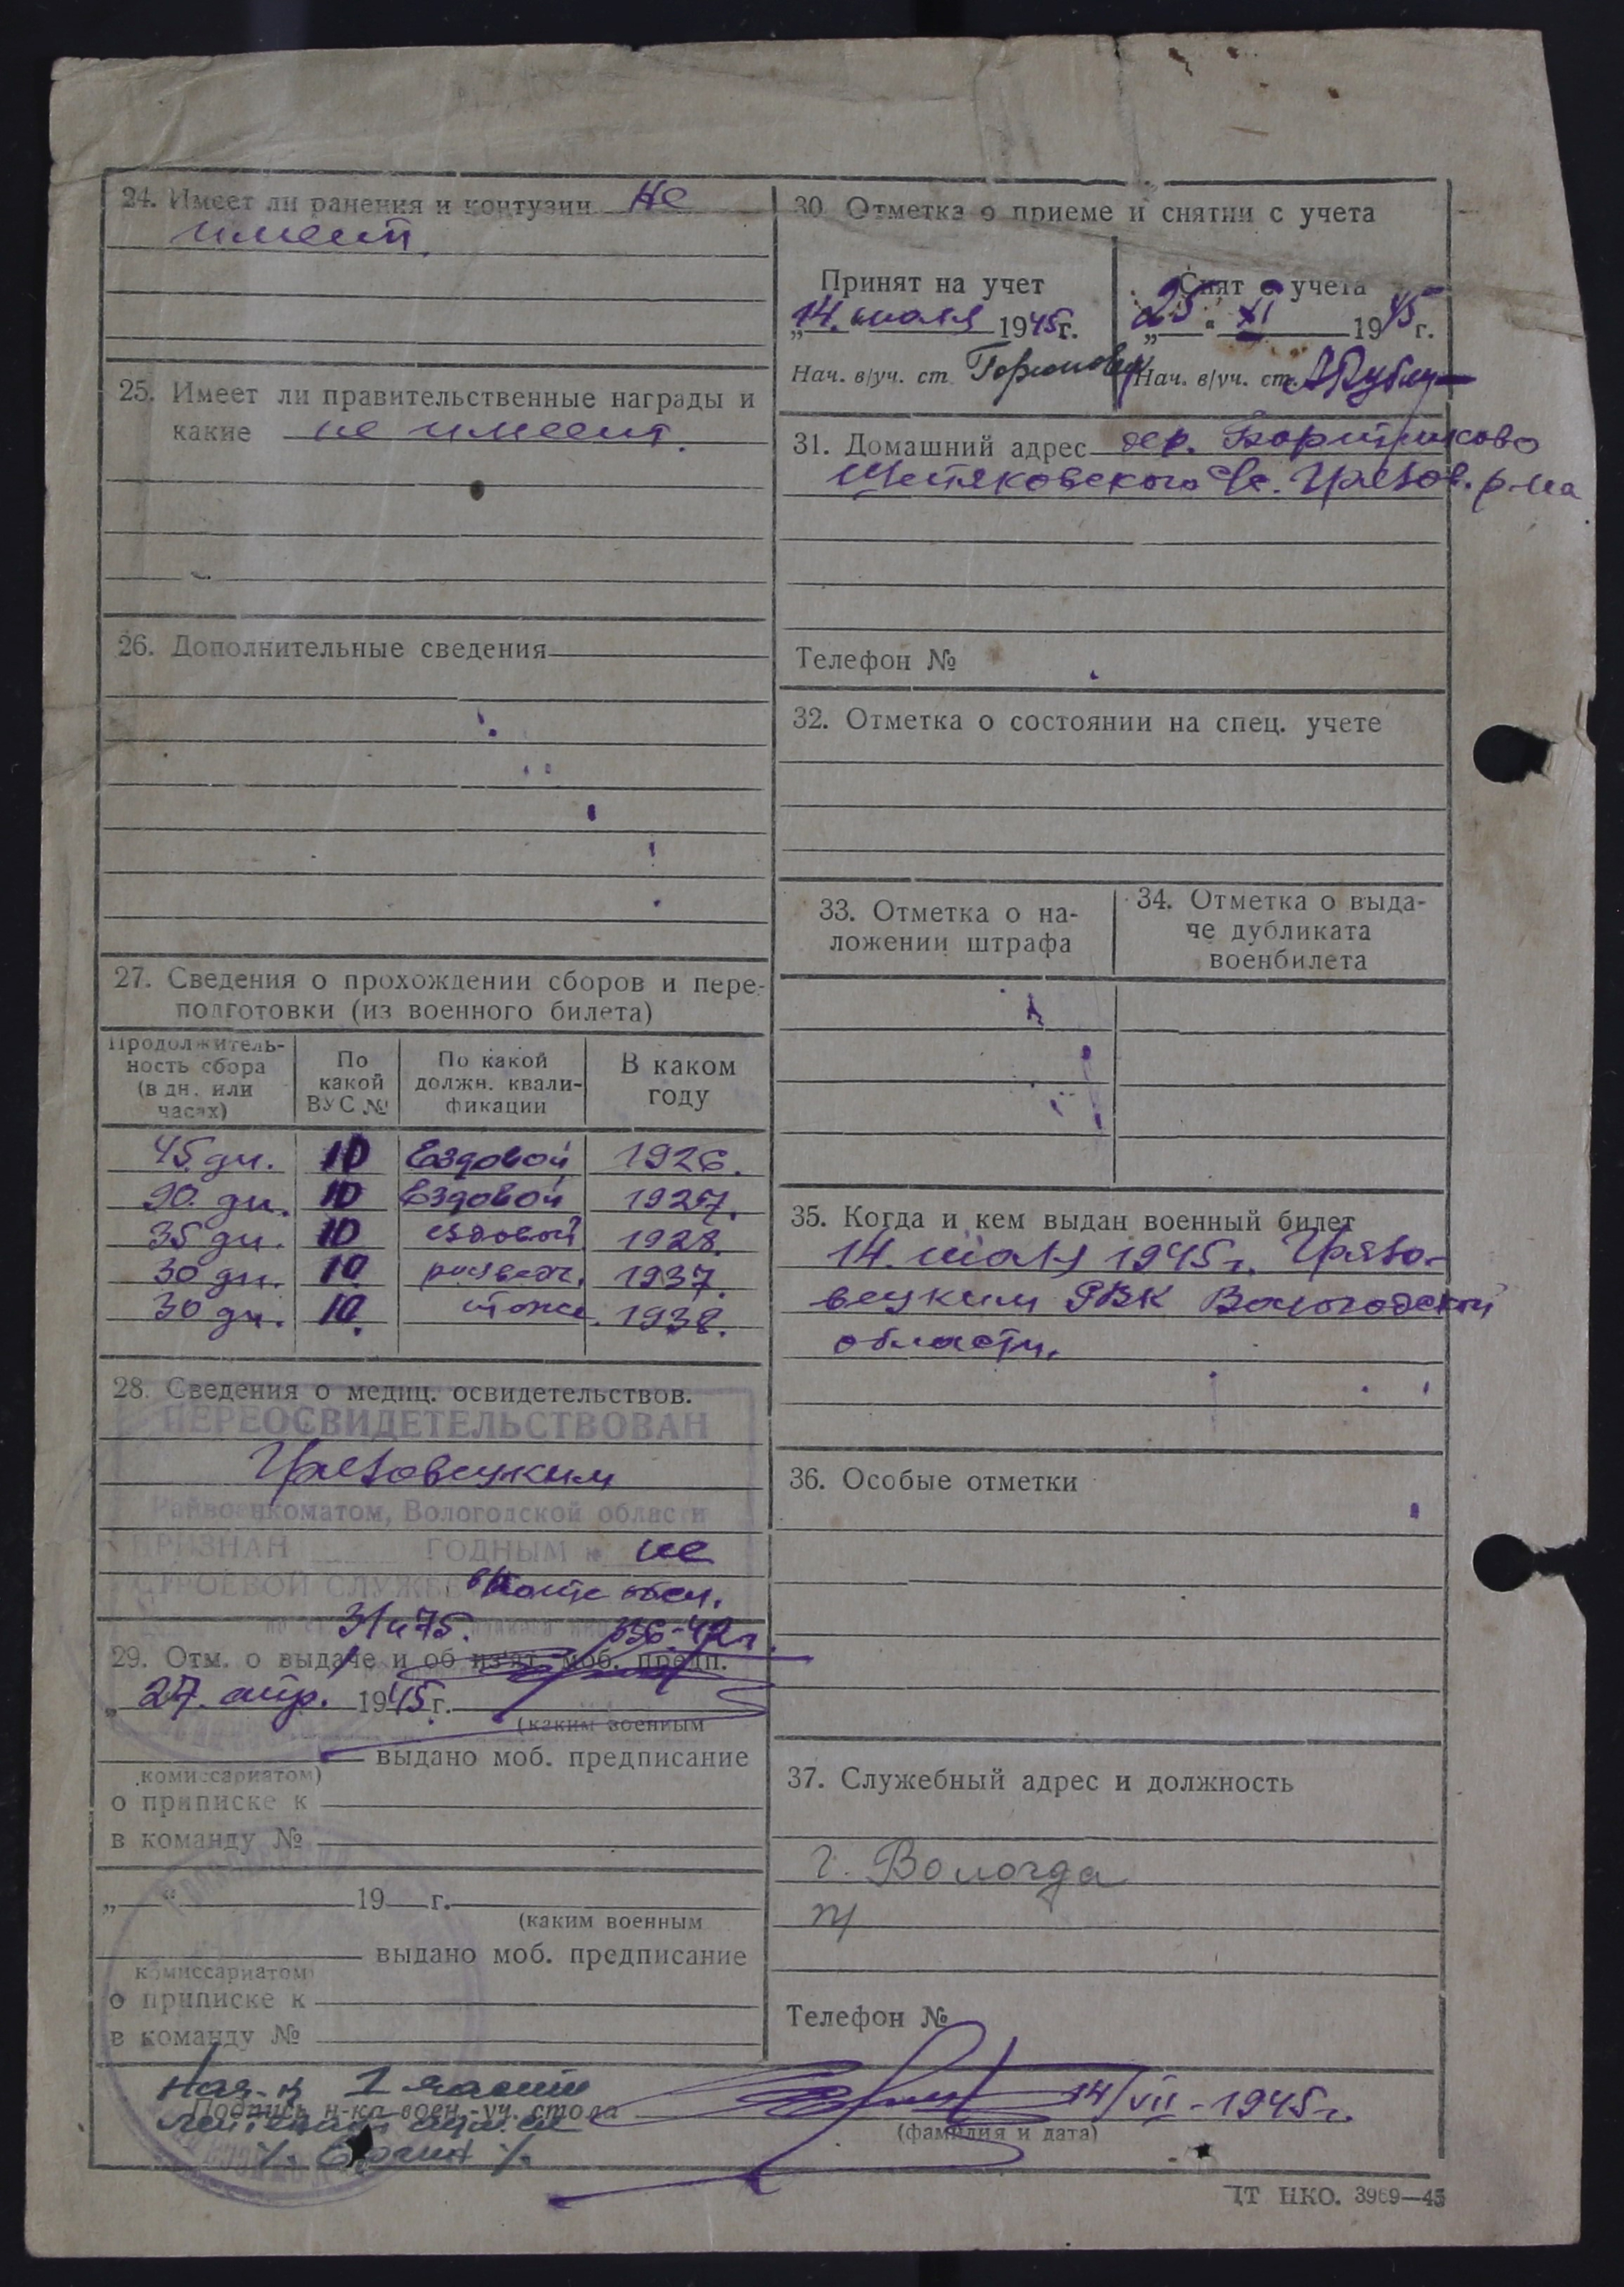 24. Имеет ли ранения и контузии не
имеет.
25. Имеет ли правительственные награды и
какие не имеет.
26. Дополнительные сведения
27. Сведения о прохождении сборов и пере-
подготовки (из военного билета)
Продолжитель-
ность сбора
(в дн. или
часах)
По
какой
ВУС №
По какой
должн. квали-
фикации
В каком
году
45 дн. 10 Ездовой 1926.
90. дн. 10 Ездовой 1927.
35 дн. 10 ездовой 1928.
30 дн. 10 1937.
30 дн. 10. тоже. 1938.
28. Сведения о медиц. освидетельствов.
ПЕРЕОСВИДЕТЕЛЬСТВОВАН
Грязовецким
Райвоенкоматом, Вологодской области
ПРИЗНАН ГОДНЫМ к не
СТРОЕВОЙ СЛУЖБЕ
336-42г.
29. Отм. о выдаче и об из'ят. моб. предп.
„27. апр. 1945 г.
(каким военным
комиссариатом)
выдано моб. предписание
о приписке к
в команду №
„ “ 19 г.
(каким военным
комиссариатом)
выдано моб. предписание
о приписке к
в команду №
Нач-к 1 части
Подпись н-ка воен.-уч. стола
14/VII-1945г.
(фамилия и дата)
30. Отметка о приеме и снятии с учета
Принят на учет
„14. июля 1945г.
Нач. в/уч. ст.
Снят с учета
„25“ XI 1945 г.
Нач. в/уч. ст.
31. Домашний адрес дер.
Грязов. р-на
Телефон №
32. Отметка о состоянии на спец. учете
33. Отметка о на-
ложении штрафа
34. Отметка о выда-
че дубликата
военбилета
35. Когда и кем выдан военный билет
14. июля 1945г. Грязо-
вецким РВК Вологодской
области.
36. Особые отметки
37. Служебный адрес и должность
г. Вологда
Телефон №
ЦТ НКО. 3969—45